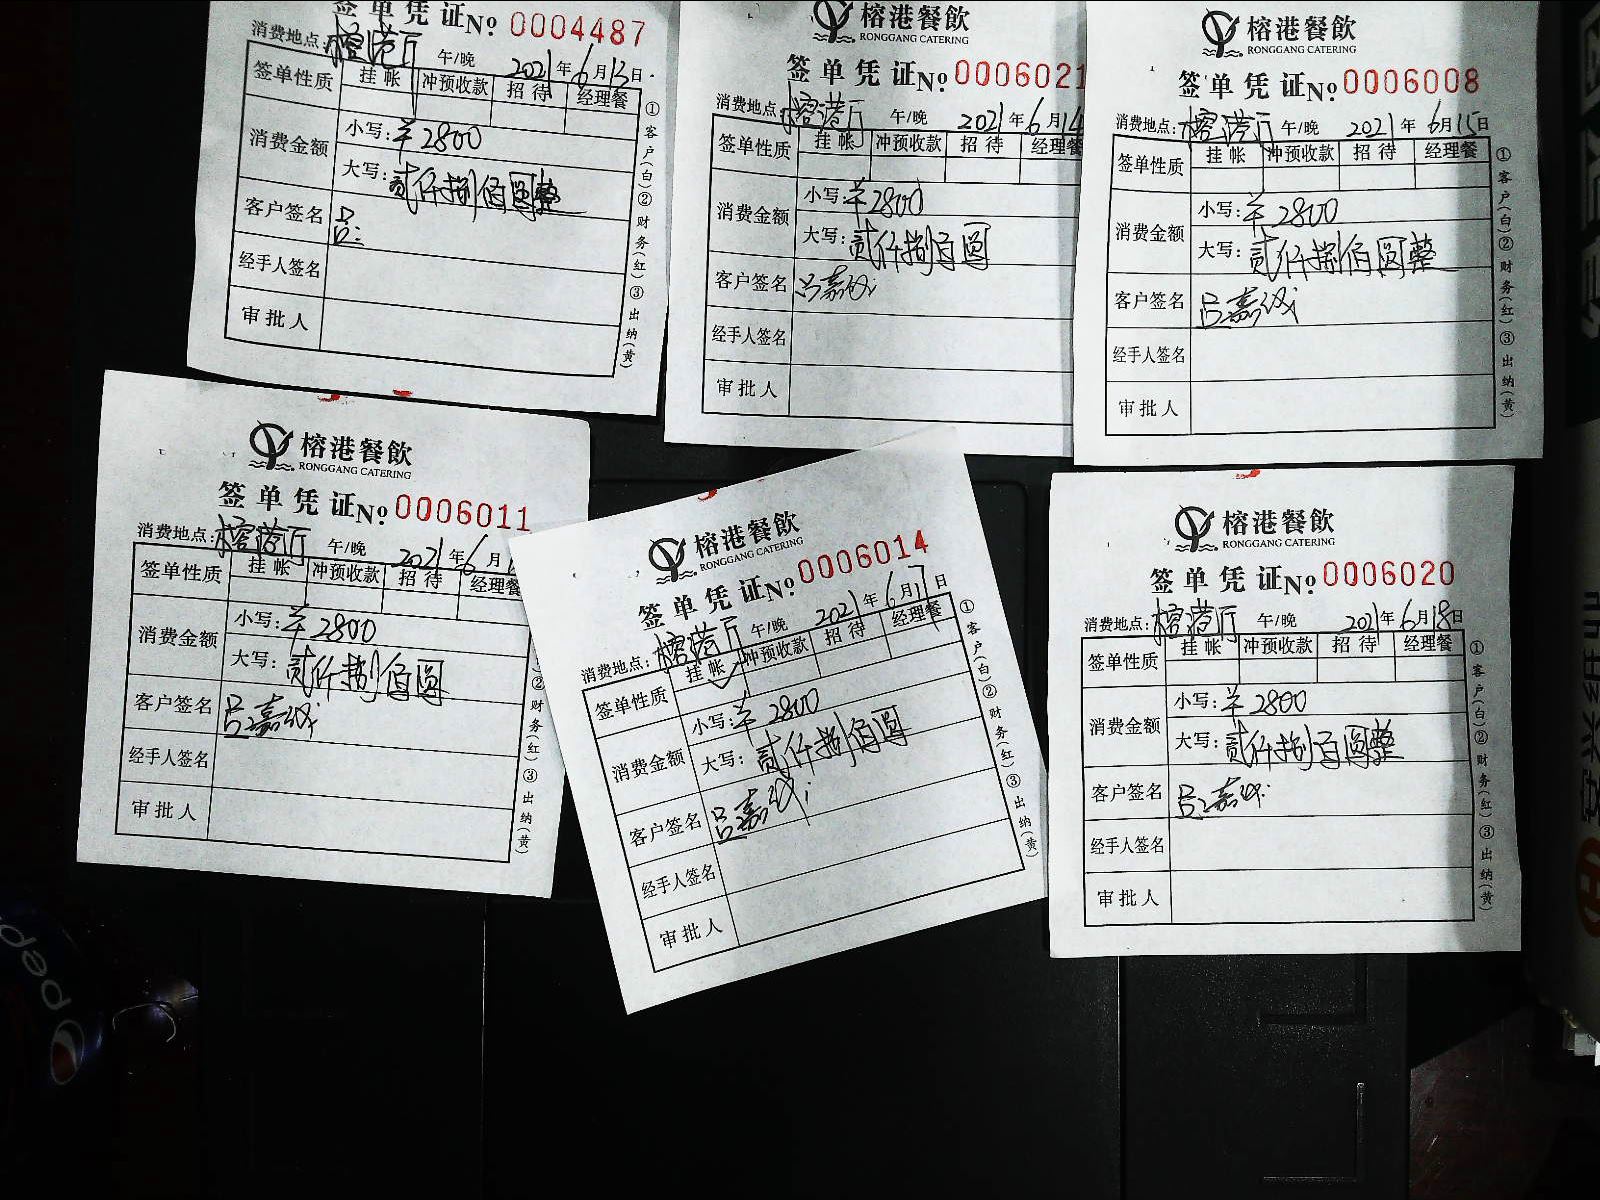 签单凭证No. 0004487
消费地点: 榕港厅 午/晚 2021年6月13日
签单性质 挂帐 冲预收款 招待 经理餐
消费金额 小写: ¥2800
大写: 贰仟捌佰圆整
客户签名 吕
经手人签名
审批人
①客户(白)②财务(红)③出纳(黄)
榕港餐飲
RONGGANG CATERING
签单凭证No. 0006021
消费地点: 榕港厅 午/晚 2021年6月14
签单性质 挂帐 冲预收款 招待 经理餐
消费金额 小写: ¥2800
大写: 贰仟捌佰圆
客户签名 吕嘉诚
经手人签名
审批人
榕港餐飲
RONGGANG CATERING
签单凭证No. 0006008
消费地点: 榕港厅 午/晚 2021年6月15日
签单性质 挂帐 冲预收款 招待 经理餐
消费金额 小写: ¥2800
大写: 贰仟捌佰圆整
客户签名 吕嘉诚
经手人签名
审批人
①客户(白)②财务(红)③出纳(黄)
榕港餐飲
RONGGANG CATERING
签单凭证No. 0006011
消费地点: 榕港厅 午/晚 2021年6月
签单性质 挂帐 冲预收款 招待 经理餐
消费金额 小写: ¥2800
大写: 贰仟捌佰圆
客户签名 吕嘉诚
经手人签名
审批人
②财务(红)③出纳(黄)
榕港餐飲
RONGGANG CATERING
签单凭证No. 0006014
消费地点: 榕港厅 午/晚 2021年6月17日
签单性质 挂帐 冲预收款 招待 经理餐
消费金额 小写: ¥2800
大写: 贰仟捌佰圆
客户签名 吕嘉诚
经手人签名
审批人
①客户(白)②财务(红)③出纳(黄)
榕港餐飲
RONGGANG CATERING
签单凭证No. 0006020
消费地点: 榕港厅 午/晚 2021年6月18日
签单性质 挂帐 冲预收款 招待 经理餐
消费金额 小写: ¥2800
大写: 贰仟捌佰圆整
客户签名 吕嘉诚
经手人签名
审批人
①客户(白)②财务(红)③出纳(黄)
pepsi